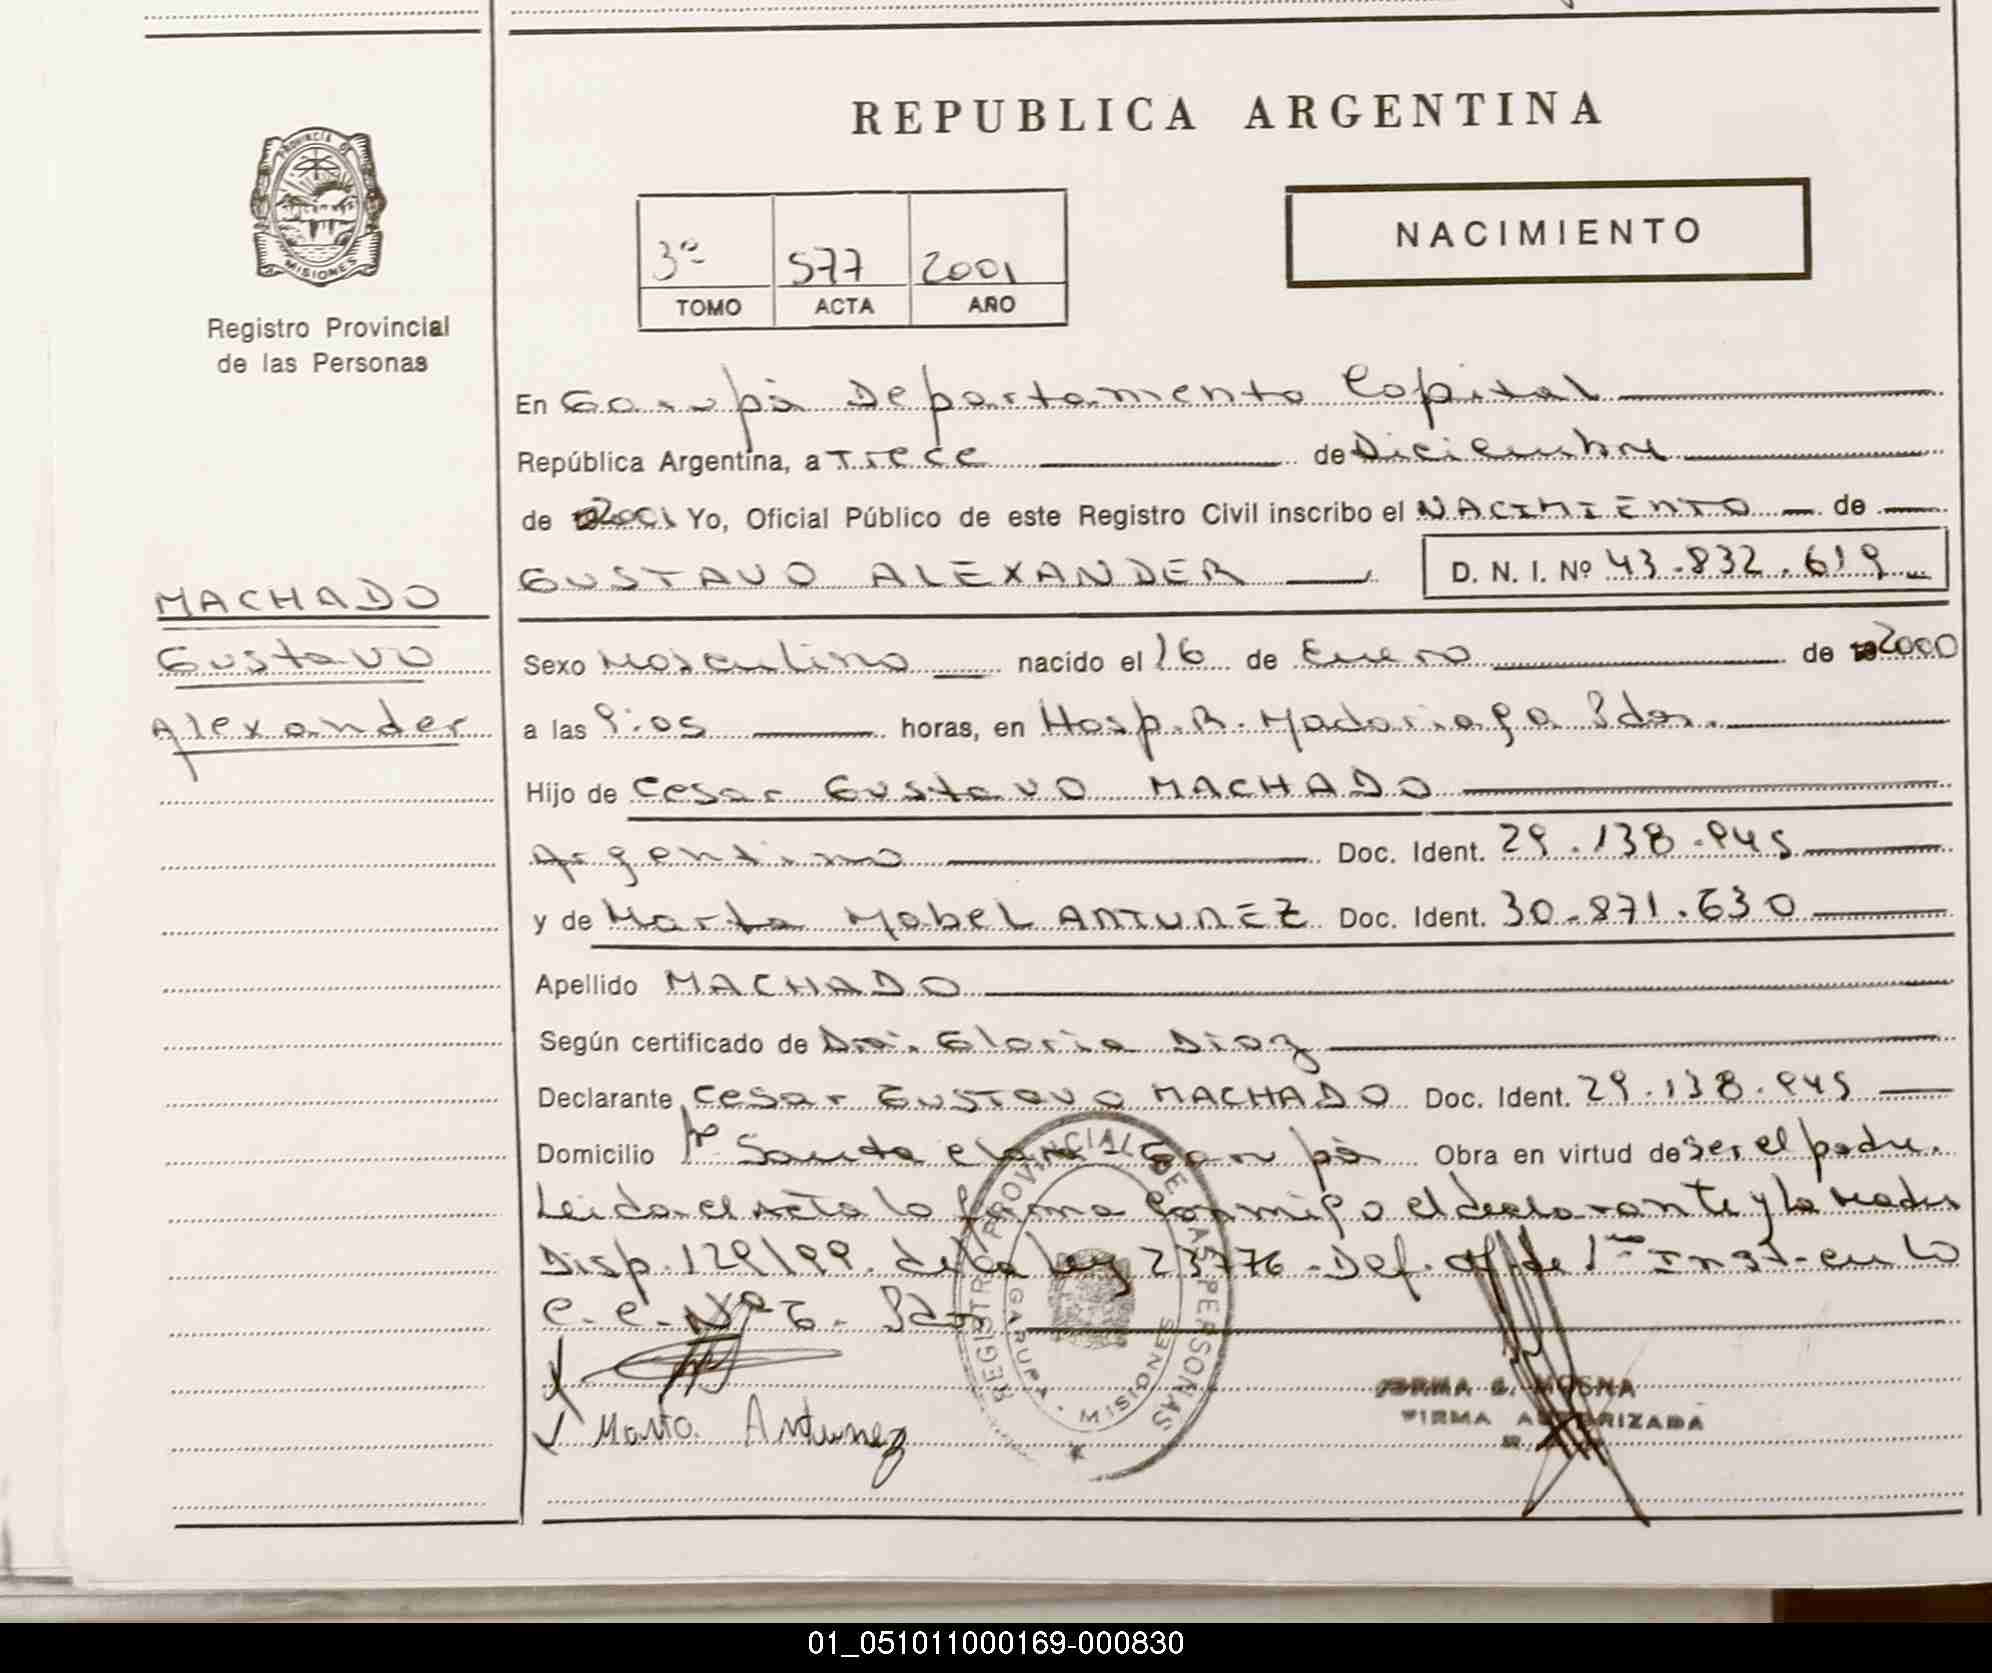 REPUBLICA ARGENTINA
PROVINCIA DE
MISIONES
Registro Provincial
de las Personas
NACIMIENTO
3º 577 2001
TOMO ACTA AÑO
En Garupá Departamento Capital
República Argentina, a Trece de Diciembre
de 2001 Yo, Oficial Público de este Registro Civil inscribo el NACIMIENTO de
GUSTAVO ALEXANDER D. N. I. Nº 43.832.619
MACHADO
Gustavo
Alexander
Sexo Masculino nacido el 16 de Enero de 2000
a las 9:05 horas, en Hosp. R. Madariaga Pdas.
Hijo de Cesar Gustavo MACHADO
Argentino Doc. Ident. 29.138.945
y de Marta Mabel ANTUNEZ Doc. Ident. 30.871.630
Apellido MACHADO
Según certificado de Dra. Gloria Diaz
Declarante Cesar GUSTAVO MACHADO Doc. Ident. 29.138.945
Domicilio Santa Clara Garupá Obra en virtud de ser el padre.
Leida el acta la firma conmigo el declarante y la madre
Disp. 129/99. de la Ley 23776. Def. Of. de 1ra Inst. en lo
C. C. Nº 6. Pdas
Marta Antunez
REGISTRO PROVINCIAL DE LAS PERSONAS
GARUPA - MISIONES
G. MOSNA
FIRMA AUTORIZADA
01_051011000169-000830